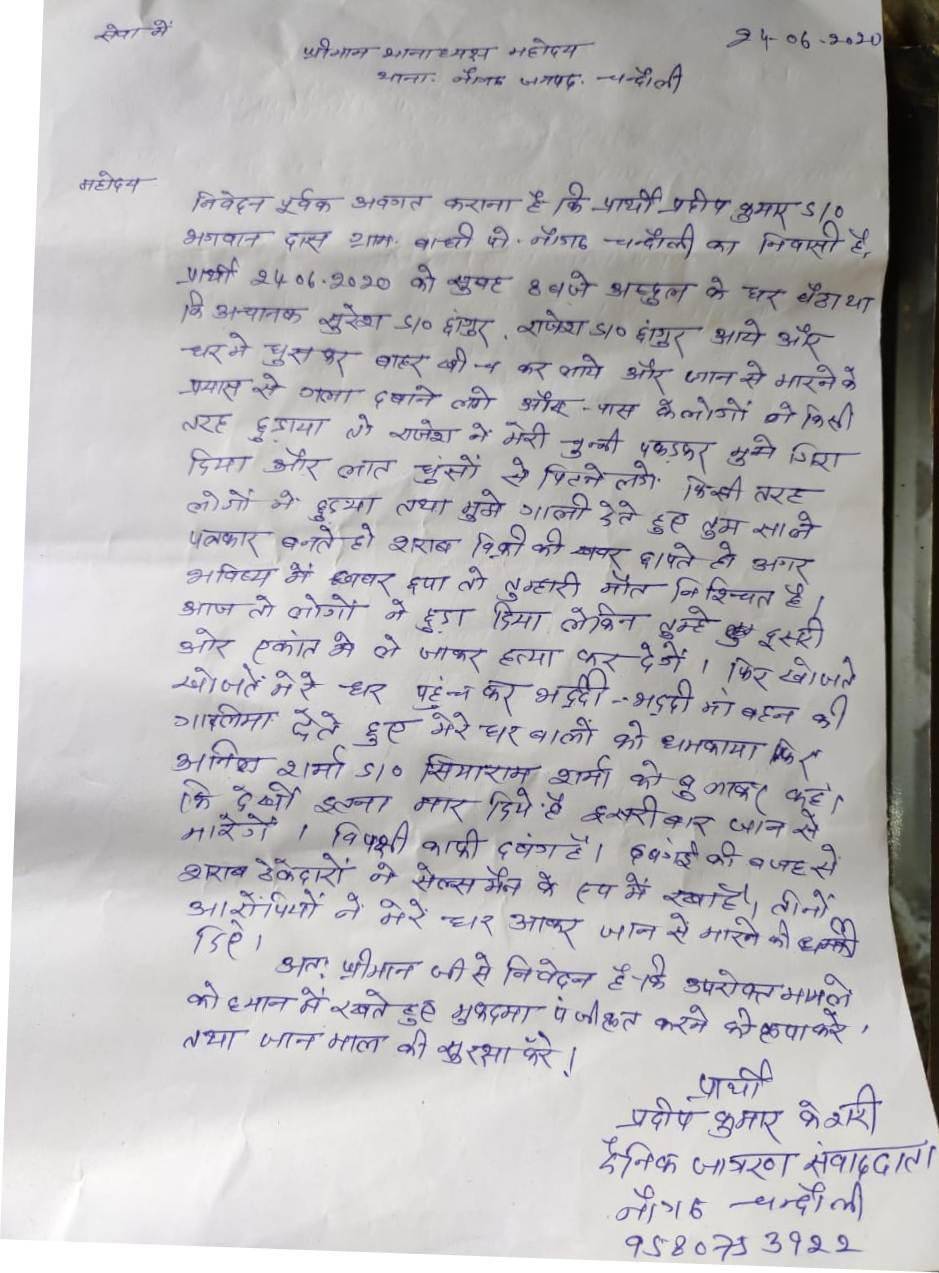 सेवा में
24-06-2020
श्रीमान थानाध्यक्ष महोदय
थाना: नौगढ जनपद: चन्दौली
महोदय
निवेदन पूर्वक अवगत कराना है कि प्रार्थी प्रदीप कुमार S/O
भगवान दास ग्राम. बाघी पो. नौगढ चन्दौली का निवासी है,
प्रार्थी 24.06.2020 को सुबह 8 बजे अब्दुल के घर बैठा था
कि अचानक सुरेश S/O डांगुर, राजेश S/O डांगुर आये और
घर मे घुसकर बाहर खीच कर लाये और जान से मारने के
प्रयास से गला दबाने लगे और पास के लोगों ने किसी
तरह छुड़ाया तो राजेश ने मेरी चुन्नी पकड़कर मुझे गिरा
दिया और लात घुंसों से पिटने लगे. किसी तरह
लोगों ने छुड़ाया तथा मुझे गाली देते हुए तुम साले
पत्रकार बनते हो शराब विक्री की खबर छापते हो अगर
भविष्य में खबर छपा तो तुम्हारी मौत निश्चित है।
आज तो लोगों ने छुड़ा दिया लेकिन तुम्हे इसरी
ओर एकांत मे ले जाकर हत्या कर देगें। फिर खोजते
खोजते मेरे घर पहुंच कर भद्दी-भद्दी मां बहन की
गालिया देते हुए मेरे घर वालों को धमकाया फिर
शर्मा S/O सियाराम शर्मा को बुलाकर कहा
कि देखों इतना मार दिये है दुसरी बार जान से
मारेगें। विपक्षी काफी दबंग है। दबंगई की वजह से
शराब ठेकेदारों ने सेल्स मैन के रुप में रखा है। तीनों
आरोपियों ने मेरे घर आकर जान से मारने की धमकी
दिए।
अतः श्रीमान जी से निवेदन है कि उपरोक्त मामले
को ध्यान में रखते हुए मुकदमा पंजीकृत करने की कृपा करें,
तथा जान माल की सुरक्षा करे!
प्रार्थी
प्रदीप कुमार केशरी
दैनिक जागरण संवाददाता
नौगढ चन्दौली
9580753922